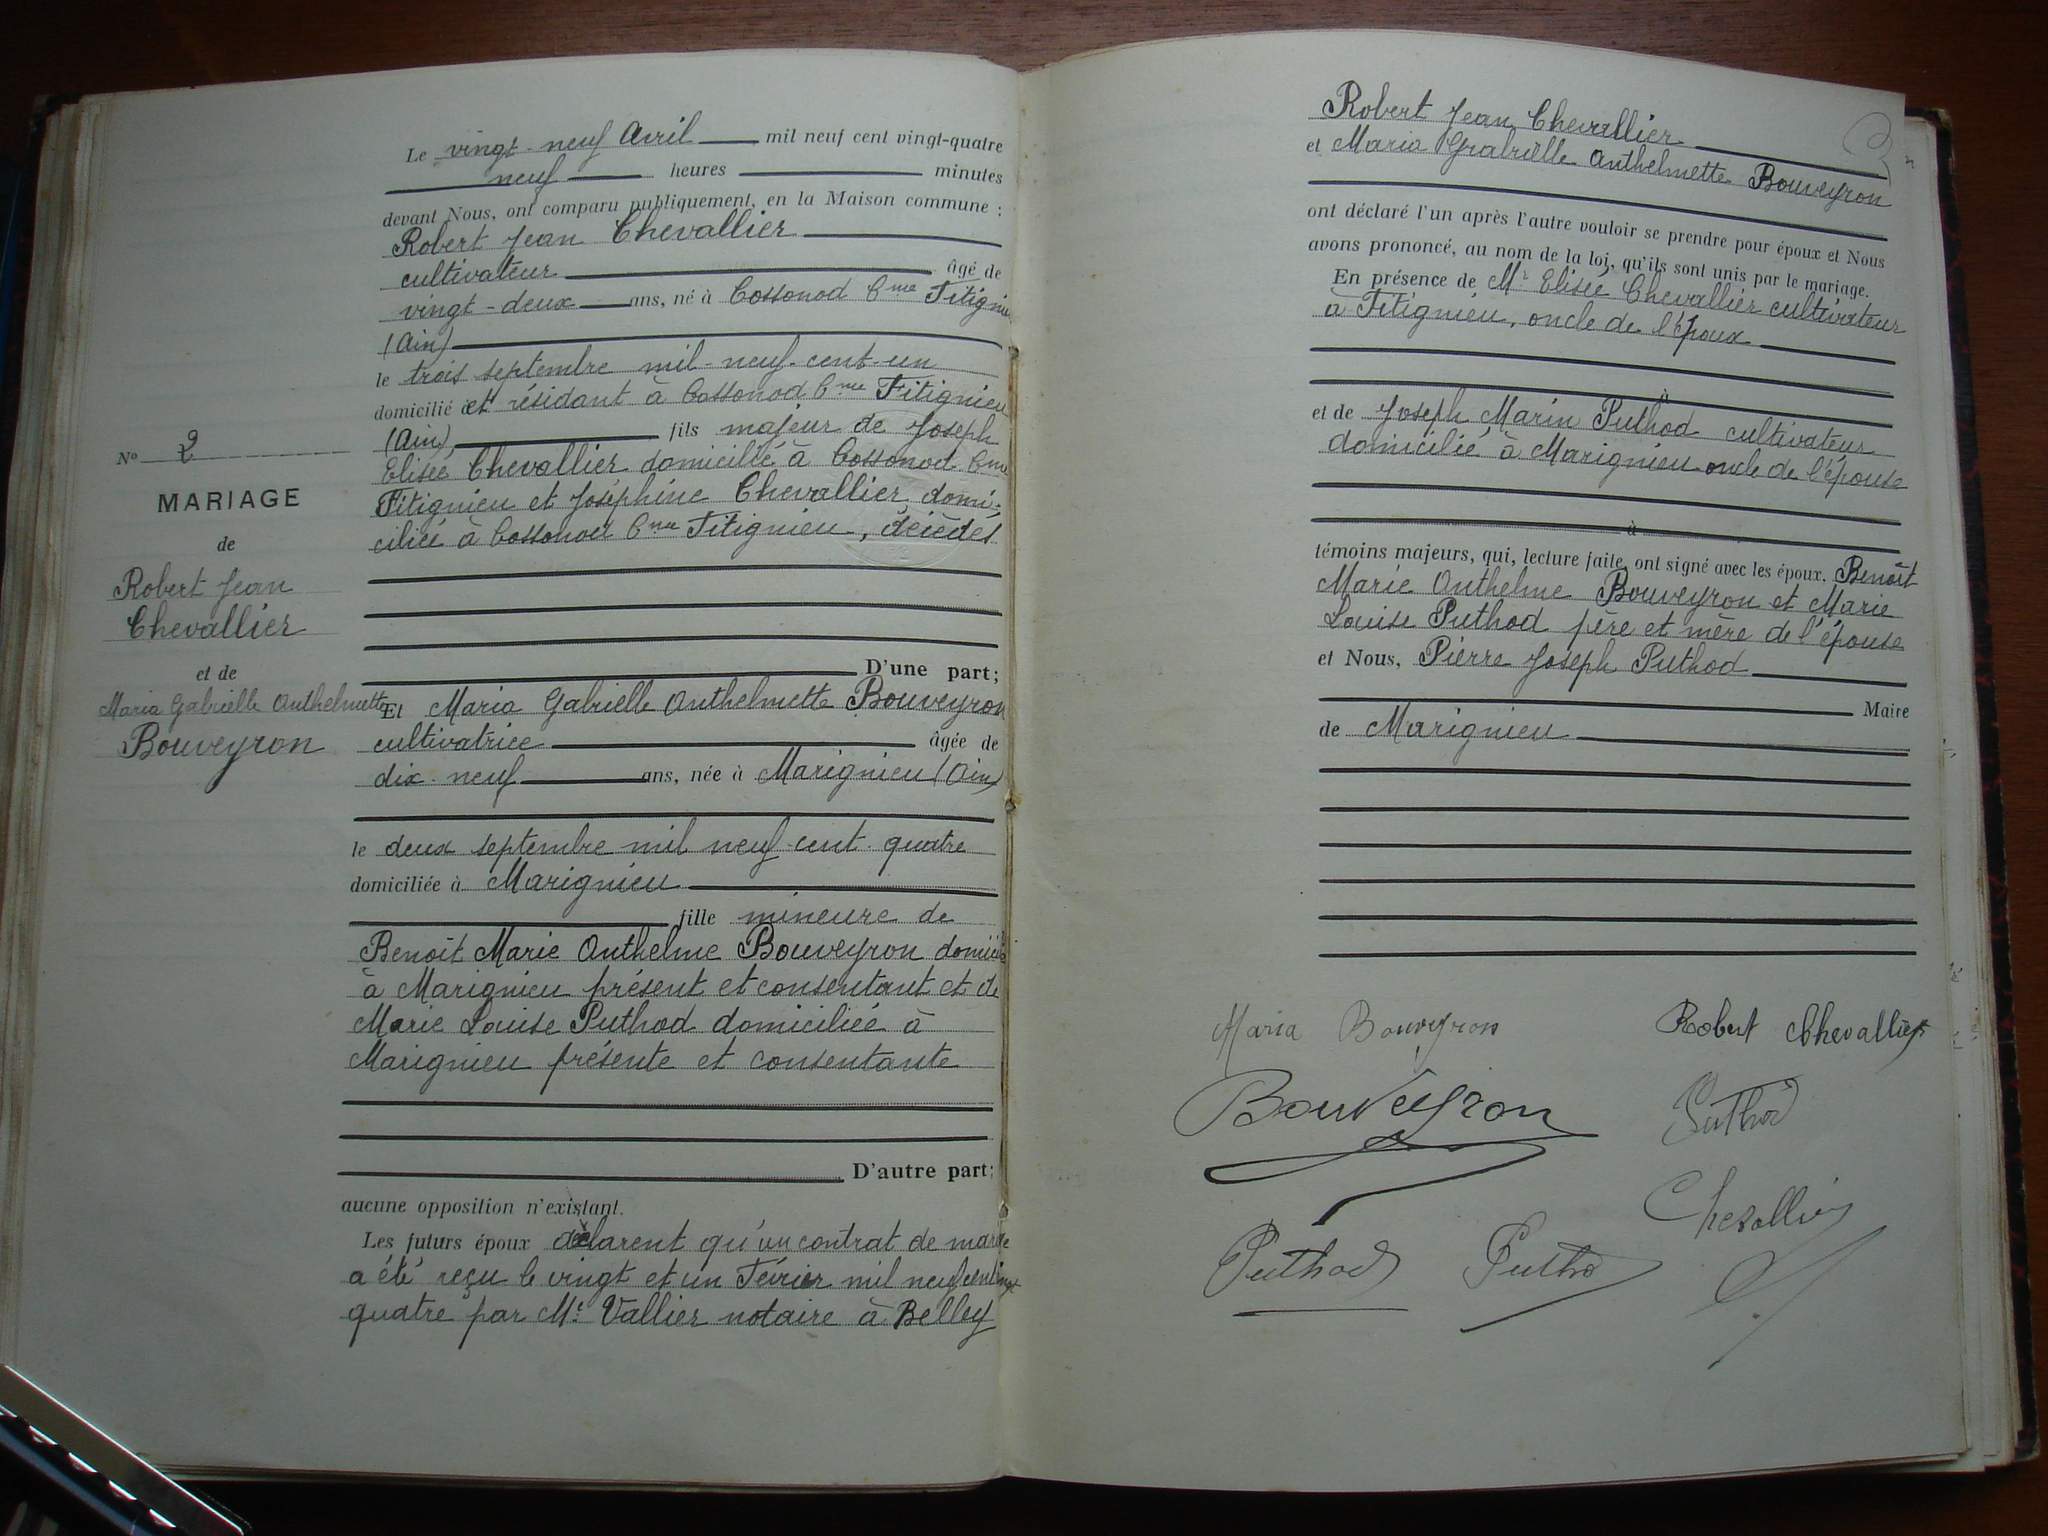 Le vingt-neuf Avril mil neuf cent vingt-quatre
neuf heures minutes
devant Nous, ont comparu publiquement, en la Maison commune :
Robert Jean Chevallier
cultivateur âgé de
vingt-deux ans, né à Cossonod Cne Fitignieu
(Ain)
le trois septembre mil-neuf-cent-un
domicilié et résidant à Cossonod Cne Fitignieu
(Ain) fils majeur de Joseph
Elisée Chevallier domicilié à Cossonod Cne
Fitignieu et Joséphine Chevallier domi-
ciliée à Cossonod Cne Fitignieu, décèdés
D'une part;
Et Maria Gabrielle Anthelmette Bouveyron
cultivatrice âgée de
dix-neuf ans, née à Marignieu (Ain)
le deux septembre mil neuf cent quatre
domiciliée à Marignieu
fille mineure de
Benoît Marie Anthelme Bouveyron domicilié
à Marignieu présent et consentant et de
Marie Louise Puthod domiciliée à
Marignieu présente et consentante
D'autre part;
aucune opposition n'existant.
Les futurs époux déclarent qu'un contrat de mariage
a été reçu le vingt et un Février mil neuf cent vingt
quatre par Me Vallier notaire à Belley
No 2
MARIAGE
de
Robert Jean
Chevallier
et de
Maria Gabrielle Anthelmette
Bouveyron
Robert Jean Chevallier
et Maria Grabrielle Anthelmette Bouveyron
ont déclaré l'un après l'autre vouloir se prendre pour époux et Nous
avons prononcé, au nom de la loi, qu'ils sont unis par le mariage.
En présence de Mr Elisée Chevallier cultivateur
à Fitignieu, oncle de l'époux
à
et de Joseph Marin Puthod cultivateur
domicilié à Marignieu oncle de l'épouse
à
témoins majeurs, qui, lecture faite, ont signé avec les époux. Benoît
Marie Anthelme Bouveyron et Marie
Louise Puthod père et mère de l'épouse
et Nous, Pierre Joseph Puthod
Maire
de Marignieu
Maria Bouveyron Robert Chevallier
Bouveyron Puthod
Chevallier
Puthod Puthod